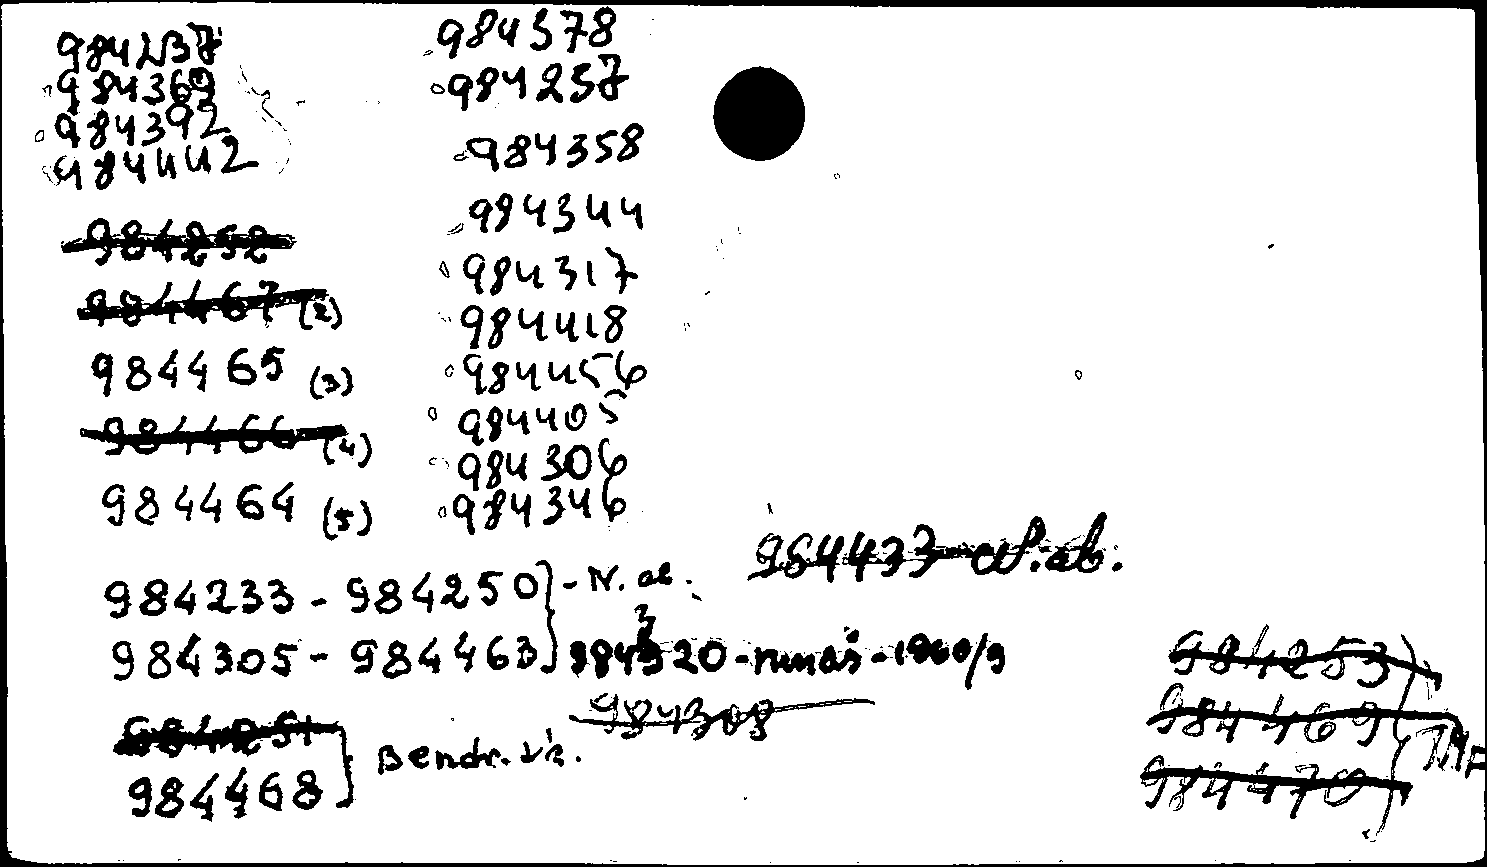 984237
984369
984392
984442
984252
984467 (2)
984465 (3)
984466 (4)
984464 (5)
984378
984257
984358
984344
984317
984418
984456
984405
984306
984346
984433 - N.ab.
984233 - 984250 } - N. ab.
984305 - 984463
984320 - numas - 1960/9
984308
984251 } Bendr.
984468
984253
984469
984470